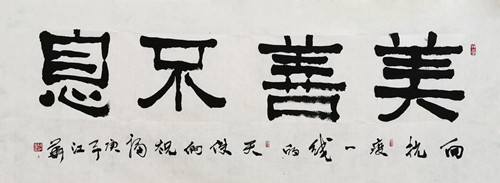 美善不息
向抗疫一线的天使们致敬 庚子江